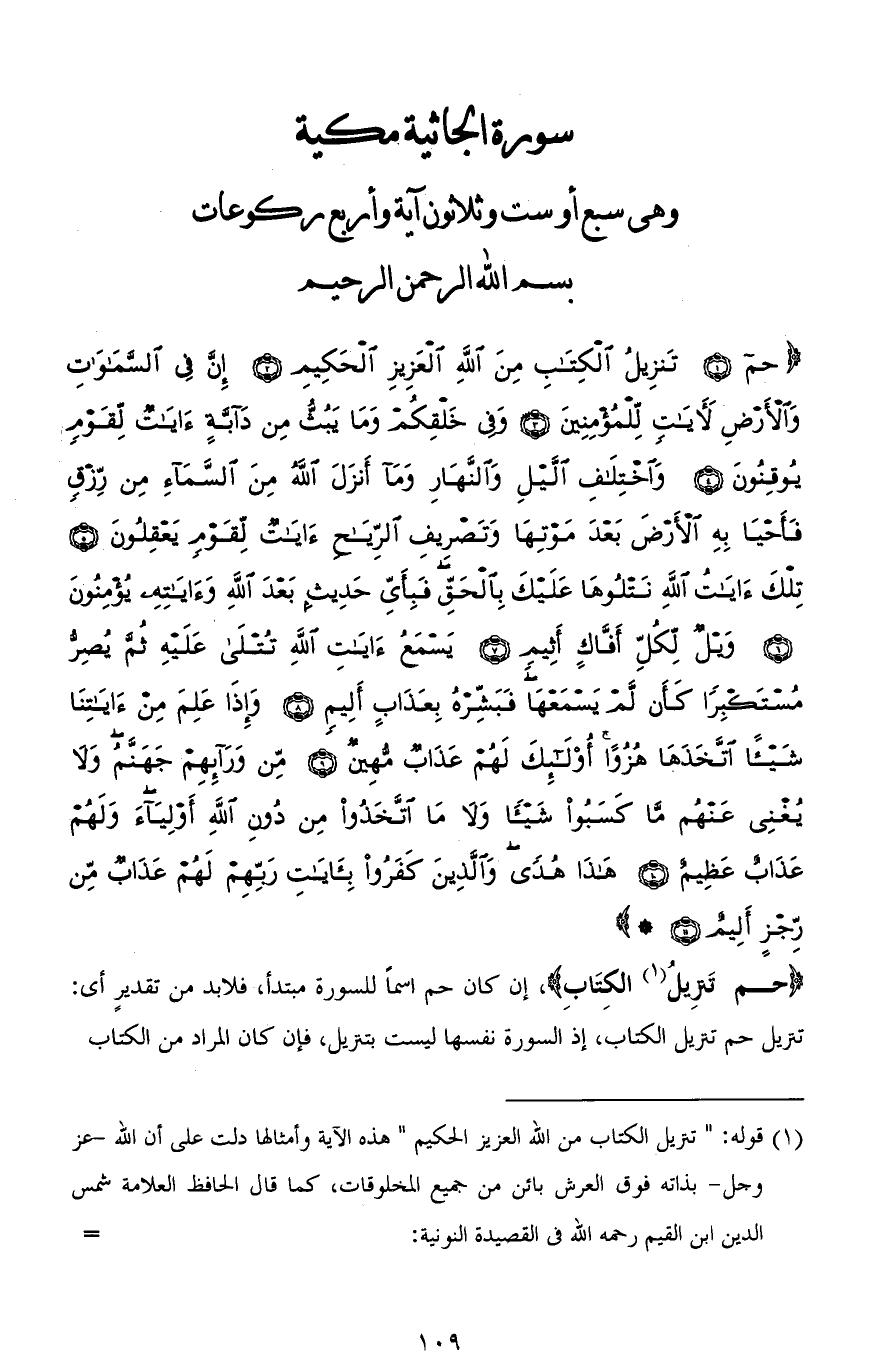 سورة الجاثية مكية
وهى سبع أو ست وثلاثون آية وأربع ركوعات
بسم الله الرحمن الرحيم
﴿حمٓ ١ تَنزِيلُ ٱلْكِتَٰبِ مِنَ ٱللَّهِ ٱلْعَزِيزِ ٱلْحَكِيمِ ٢ إِنَّ فِى ٱلسَّمَٰوَٰتِ
وَٱلْأَرْضِ لَأٓيَٰتٍ لِّلْمُؤْمِنِينَ ٣ وَفِى خَلْقِكُمْ وَمَا يَبُثُّ مِن دَآبَّةٍ ءَايَٰتٌ لِّقَوْمٍ
يُوقِنُونَ ٤ وَٱخْتِلَٰفِ ٱلَّيْلِ وَٱلنَّهَارِ وَمَآ أَنزَلَ ٱللَّهُ مِنَ ٱلسَّمَآءِ مِن رِّزْقٍ
فَأَحْيَا بِهِ ٱلْأَرْضَ بَعْدَ مَوْتِهَا وَتَصْرِيفِ ٱلرِّيَٰحِ ءَايَٰتٌ لِّقَوْمٍ يَعْقِلُونَ ٥
تِلْكَ ءَايَٰتُ ٱللَّهِ نَتْلُوهَا عَلَيْكَ بِٱلْحَقِّ ۖ فَبِأَىِّ حَدِيثٍۭ بَعْدَ ٱللَّهِ وَءَايَٰتِهِۦ يُؤْمِنُونَ
٦ وَيْلٌ لِّكُلِّ أَفَّاكٍ أَثِيمٍ ٧ يَسْمَعُ ءَايَٰتِ ٱللَّهِ تُتْلَىٰ عَلَيْهِ ثُمَّ يُصِرُّ
مُسْتَكْبِرًا كَأَن لَّمْ يَسْمَعْهَا ۖ فَبَشِّرْهُ بِعَذَابٍ أَلِيمٍ ٨ وَإِذَا عَلِمَ مِنْ ءَايَٰتِنَا
شَيْـًٔا ٱتَّخَذَهَا هُزُوًا ۚ أُوْلَٰٓئِكَ لَهُمْ عَذَابٌ مُّهِينٌ ٩ مِّن وَرَآئِهِمْ جَهَنَّمُ ۖ وَلَا
يُغْنِى عَنْهُم مَّا كَسَبُوا۟ شَيْـًٔا وَلَا مَا ٱتَّخَذُوا۟ مِن دُونِ ٱللَّهِ أَوْلِيَآءَ ۖ وَلَهُمْ
عَذَابٌ عَظِيمٌ ١٠ هَٰذَا هُدًى ۖ وَٱلَّذِينَ كَفَرُوا۟ بِـَٔايَٰتِ رَبِّهِمْ لَهُمْ عَذَابٌ مِّن
رِّجْزٍ أَلِيمٌ ١١ *﴾
﴿حـم تَنزِيلُ(١) الكِتَابِ﴾، إن كان حم اسماً للسورة مبتدأ، فلابد من تقديرٍ أى:
تنزيل حم تنزيل الكتاب، إذ السورة نفسها ليست بتنزيل، فإن كان المراد من الكتاب
(١) قوله: " تنزيل الكتاب من الله العزيز الحكيم " هذه الآية وأمثالها دلت على أن الله -عز
وجل- بذاته فوق العرش بائن من جميع المخلوقات، كما قال الحافظ العلامة شمس
الدين ابن القيم رحمه الله فى القصيدة النونية: =
١٠٩